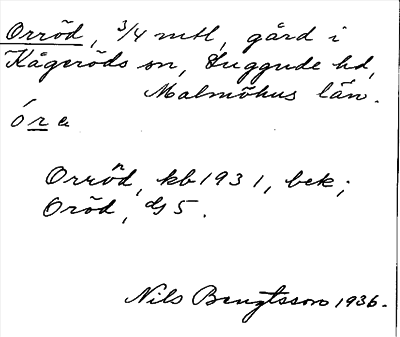 Orröd, 3/4 mtl, gård i
Kågeröds sn, Luggude hd,
Malmöhus län.
óra
Orrönd, kb 1931, bek;
Oröd, GS.
Nils Bengtsson 1936.